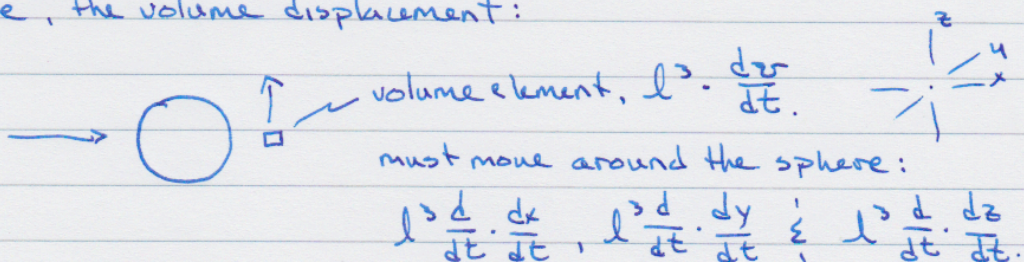 e, the volume displacement:
z
y
x
volume element, l³ · dv/dt.
must move around the sphere:
l³ d/dt · dx/dt, l³ d/dt · dy/dt & l³ d/dt · dz/dt.